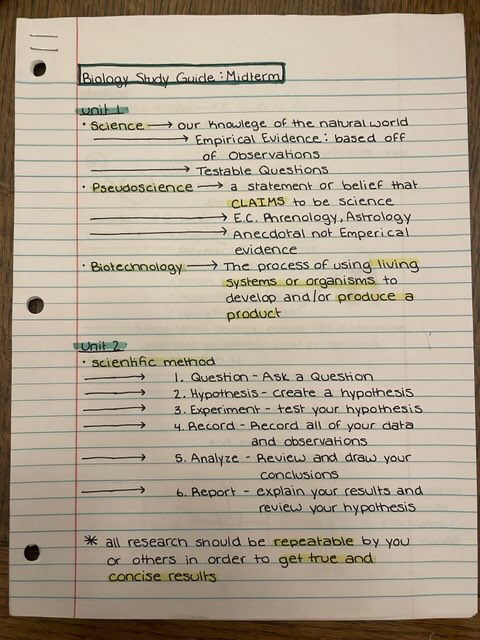 Biology Study Guide: Midterm
Unit 1
· Science → our knowlege of the natural world
→ Empirical Evidence: based off
of Observations
→ Testable Questions
· Pseudoscience → a statement or belief that
CLAIMS to be science
→ E.C. Phrenology, Astrology
→ Anecdotal not Emperical
evidence
· Biotechnology → The process of using living
systems or organisms to
develop and/or produce a
product
Unit 2
· scientific method
→ 1. Question - Ask a Question
→ 2. Hypothesis - create a hypothesis
→ 3. Experiment - test your hypothesis
→ 4. Record - Record all of your data
and observations
→ 5. Analyze - Review and draw your
conclusions
→ 6. Report - explain your results and
review your hypothesis
* all research should be repeatable by you
or others in order to get true and
concise results